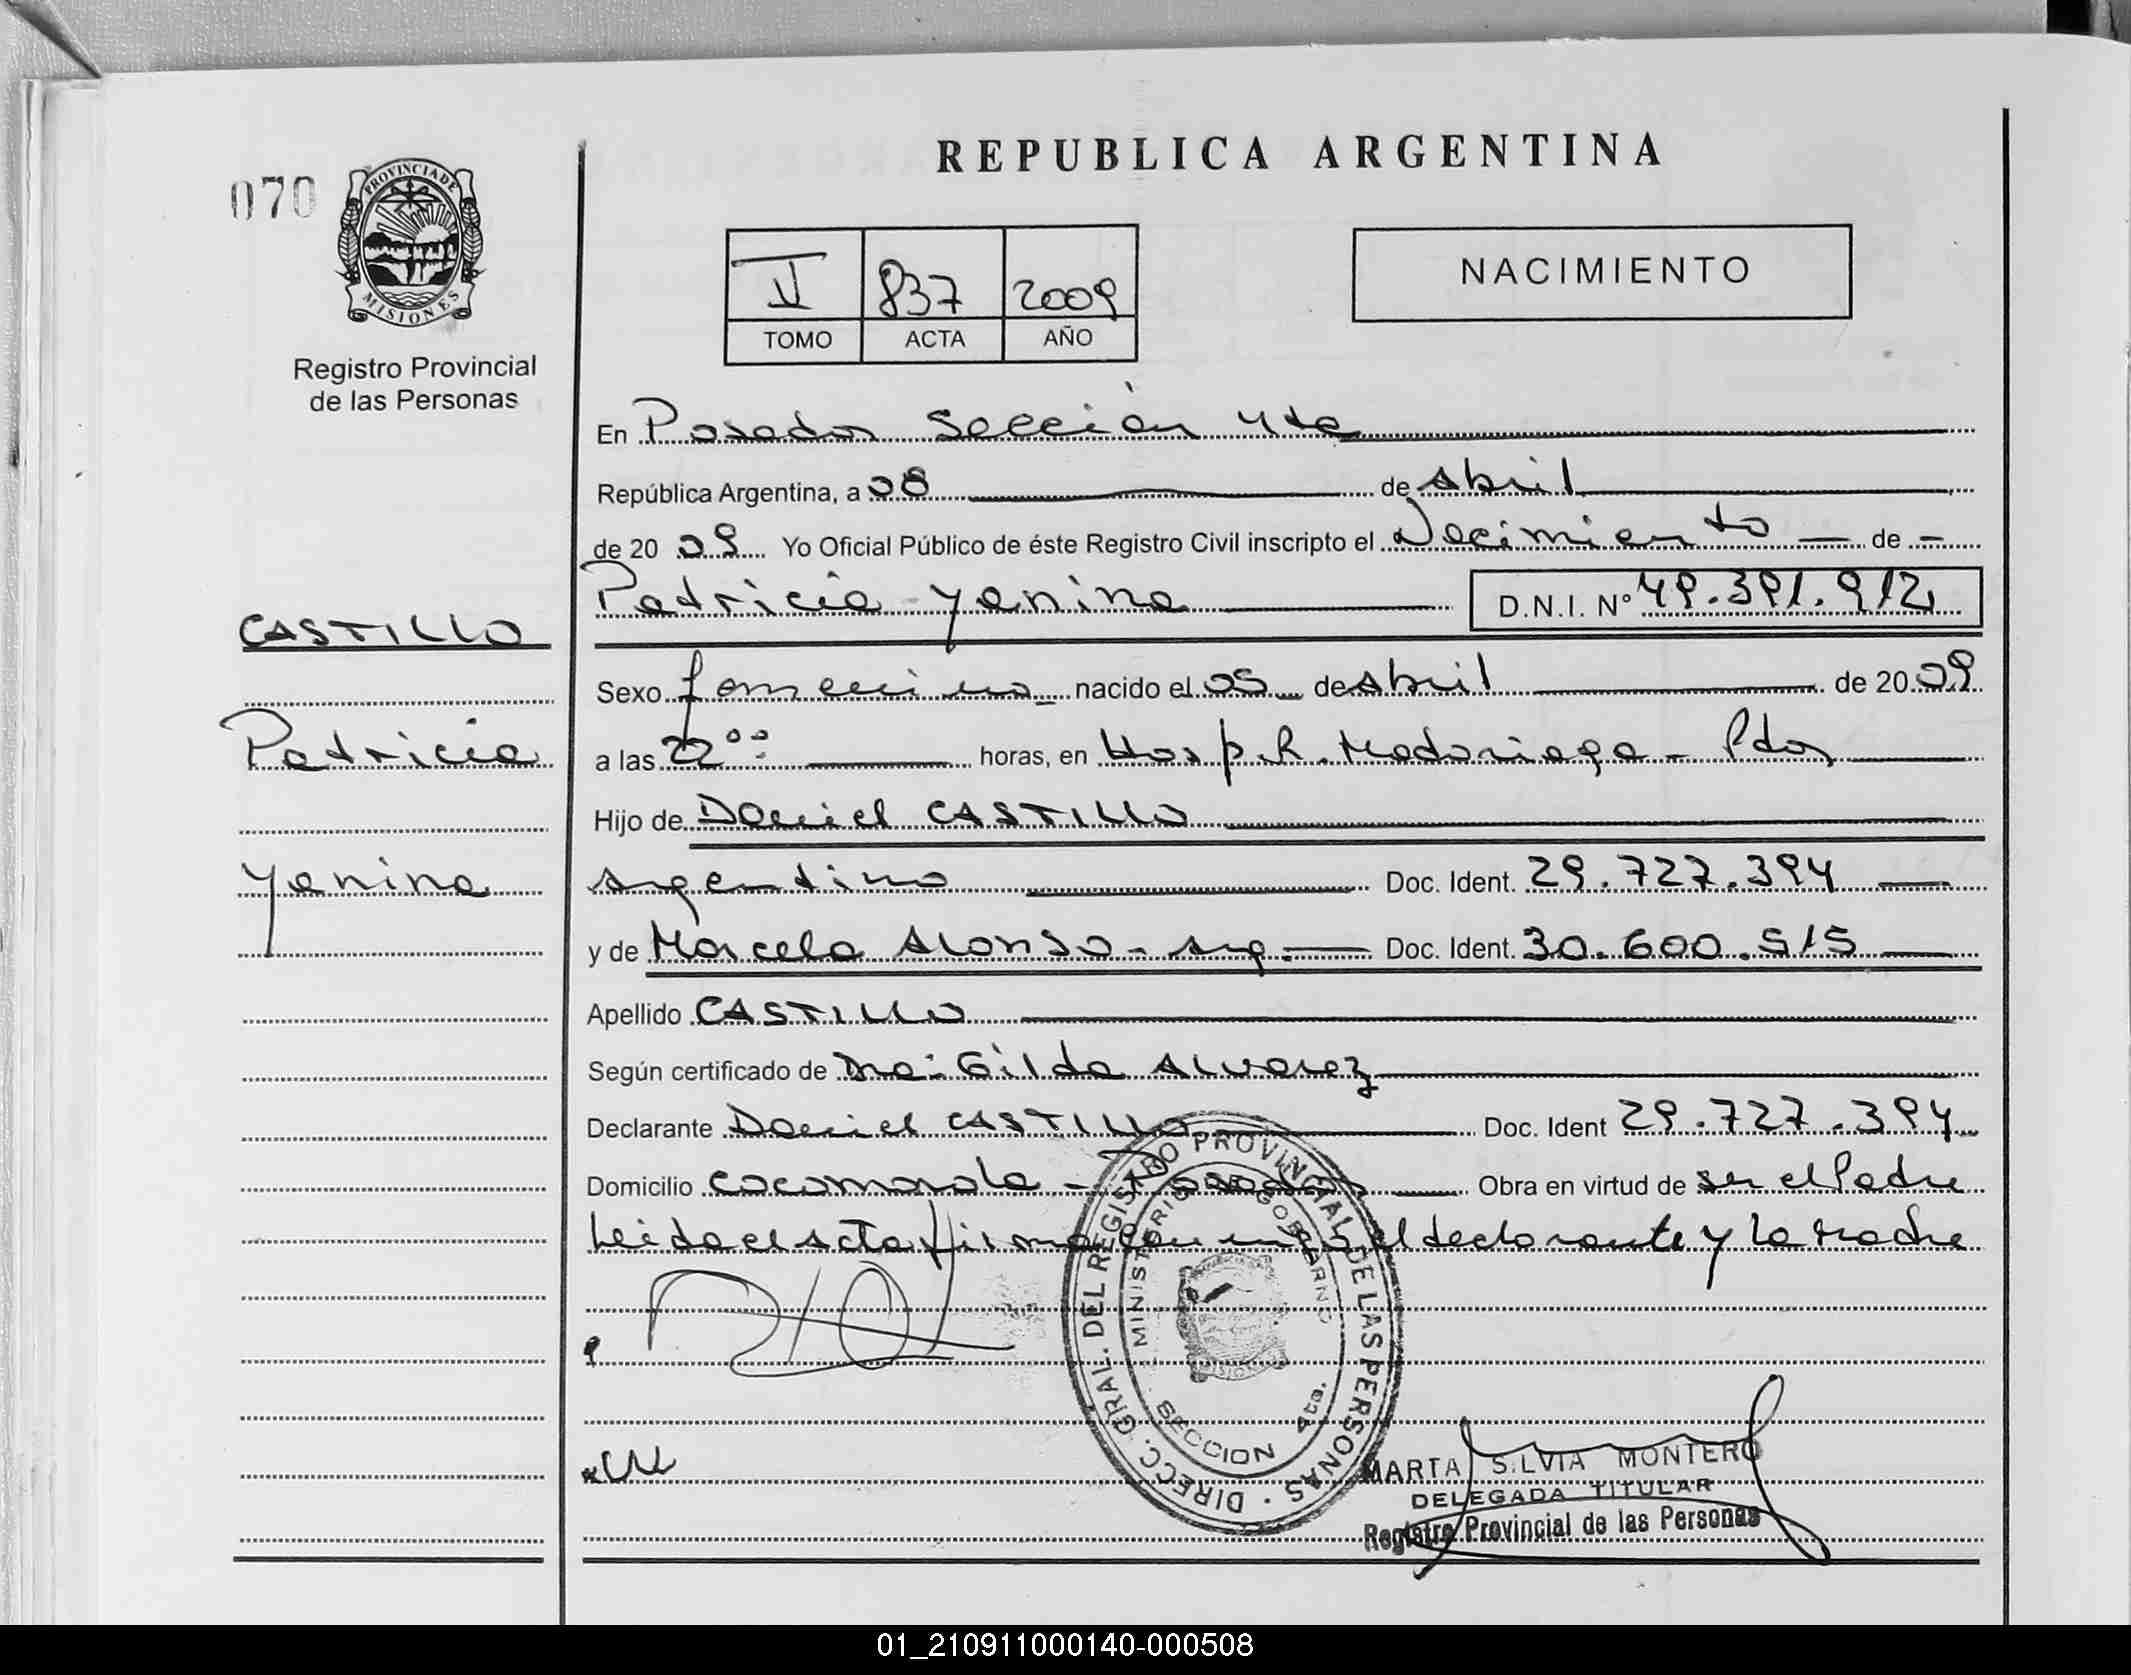 REPUBLICA ARGENTINA
070
PROVINCIA DE
MISIONES
Registro Provincial
de las Personas
V 837 2009
TOMO ACTA AÑO
NACIMIENTO
En Posadas Sección 4ta
República Argentina, a 08 de Abril
de 20 09 Yo Oficial Público de éste Registro Civil inscripto el Nacimiento de
Patricia Yanina D.N.I. Nº 49.391.912
CASTILLO
Patricia
Yanina
Sexo femenino nacido el 05 de Abril de 20 09
a las 22⁰⁰ horas, en Hosp. R. Madariaga - Pdas
Hijo de Daniel CASTILLO
Argentino Doc. Ident. 29.727.394
y de Marcela Alonso - Arg. Doc. Ident. 30.600.515
Apellido CASTILLO
Según certificado de Dra: Gilda Alvarez
Declarante Daniel CASTILLO Doc. Ident 29.727.394
Domicilio Cocomarola - Posadas Obra en virtud de ser el Padre
Leida el Acta firma con migo el declarante y la Madre
DIRECC. GRAL. DEL REGISTRO PROVINCIAL DE LAS PERSONAS
MINISTERIO GOBIERNO
SECCION 4ta.
MARTA SILVIA MONTERO
DELEGADA TITULAR
Registro Provincial de las Personas
01_210911000140-000508